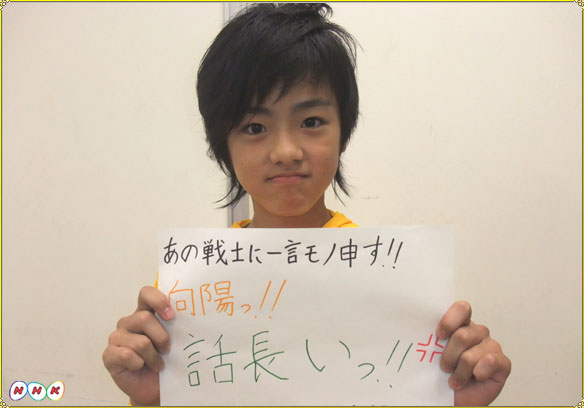 あの戦士に一言モノ申す!!
向陽っ!!
話長いっ!!
NHK